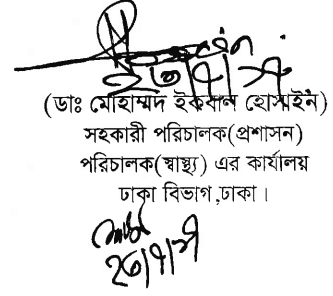 (ডাঃ মোহাম্মদ ইকবাল হোসাইন)
সহকারী পরিচালক(প্রশাসন)
পরিচালক(স্বাস্থ্য) এর কার্যালয়
ঢাকা বিভাগ,ঢাকা।